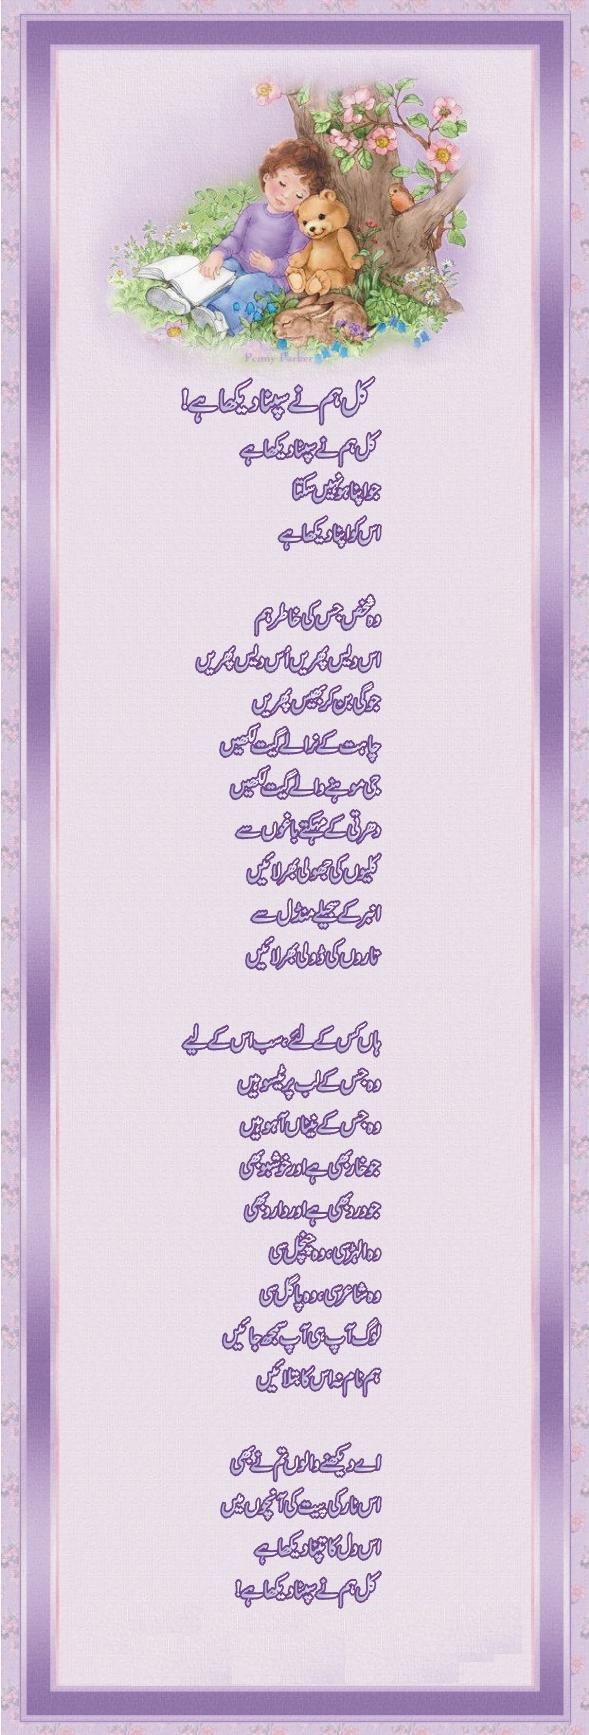 Penny Parker
کل ہم نے سپنا دیکھا ہے!
کل ہم نے سپنا دیکھا ہے
جو اپنا ہو نہیں سکتا
اس کو اپنا دیکھا ہے
وہ شخص جس کی خاطر ہم
اس دیس پھریں اُس دیس پھریں
جوگی بن کر بھیس پھریں
چاہت کے نرالے گیت لکھیں
جی موہنے والے گیت لکھیں
دھرتی کے مہکتے باغوں سے
کلیوں کی جھولی بھر لائیں
انبر کے سجیلے منڈل سے
تاروں کی ڈولی بھر لائیں
ہاں کس کے لئے، سب اس کے لیے
وہ جس کے لب پر ٹیسو ہیں
وہ جس کے نیناں آہو ہیں
جو خار بھی ہے اور خوشبو بھی
جو درد بھی ہے اور دارو بھی
وہ الہڑ سی، وہ چنچل سی
وہ شاعر سی، وہ پاگل سی
لوگ آپ ہی آپ سمجھ جائیں
ہم نام نہ اس کا بتلائیں
اے دیکھنے والوں تم نے بھی
اس نار کی پیت کی آنچوں میں
اس دل کا تپنا دیکھا ہے
کل ہم نے سپنا دیکھا ہے!